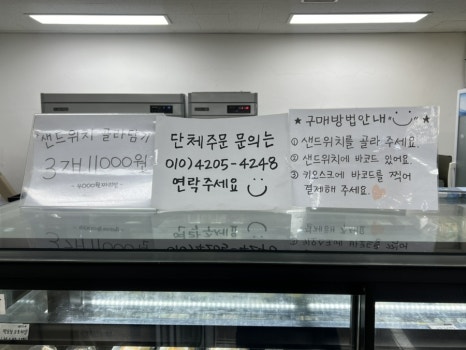 샌드위치 골라담기
3개 11000원
단체주문 문의는
010) 4205-4248
연락주세요
★ 구매방법안내 ★
① 샌드위치를 골라 주세요.
② 샌드위치에 바코드 있어요.
③ 키오스크에 바코드를 찍어
결제해 주세요.